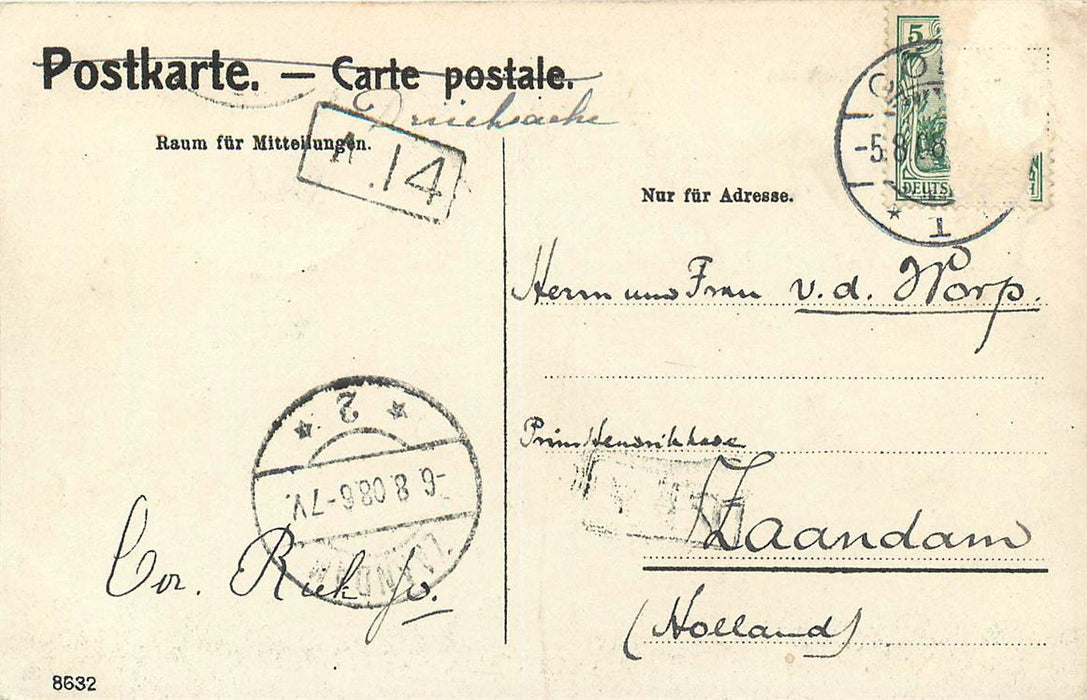 Postkarte. — Carte postale.
Drucksache
Raum für Mitteilungen.
A.14
Nur für Adresse.
5
-5.8.
DEUTS
* 1
Herrn und Frau v.d. Worp.
Prins Hendrikkade
Zaandam
(Holland)
* 2 *
-6.8.08.6-7V.
ZAANDAM
Cor. Riek Jo.
8632